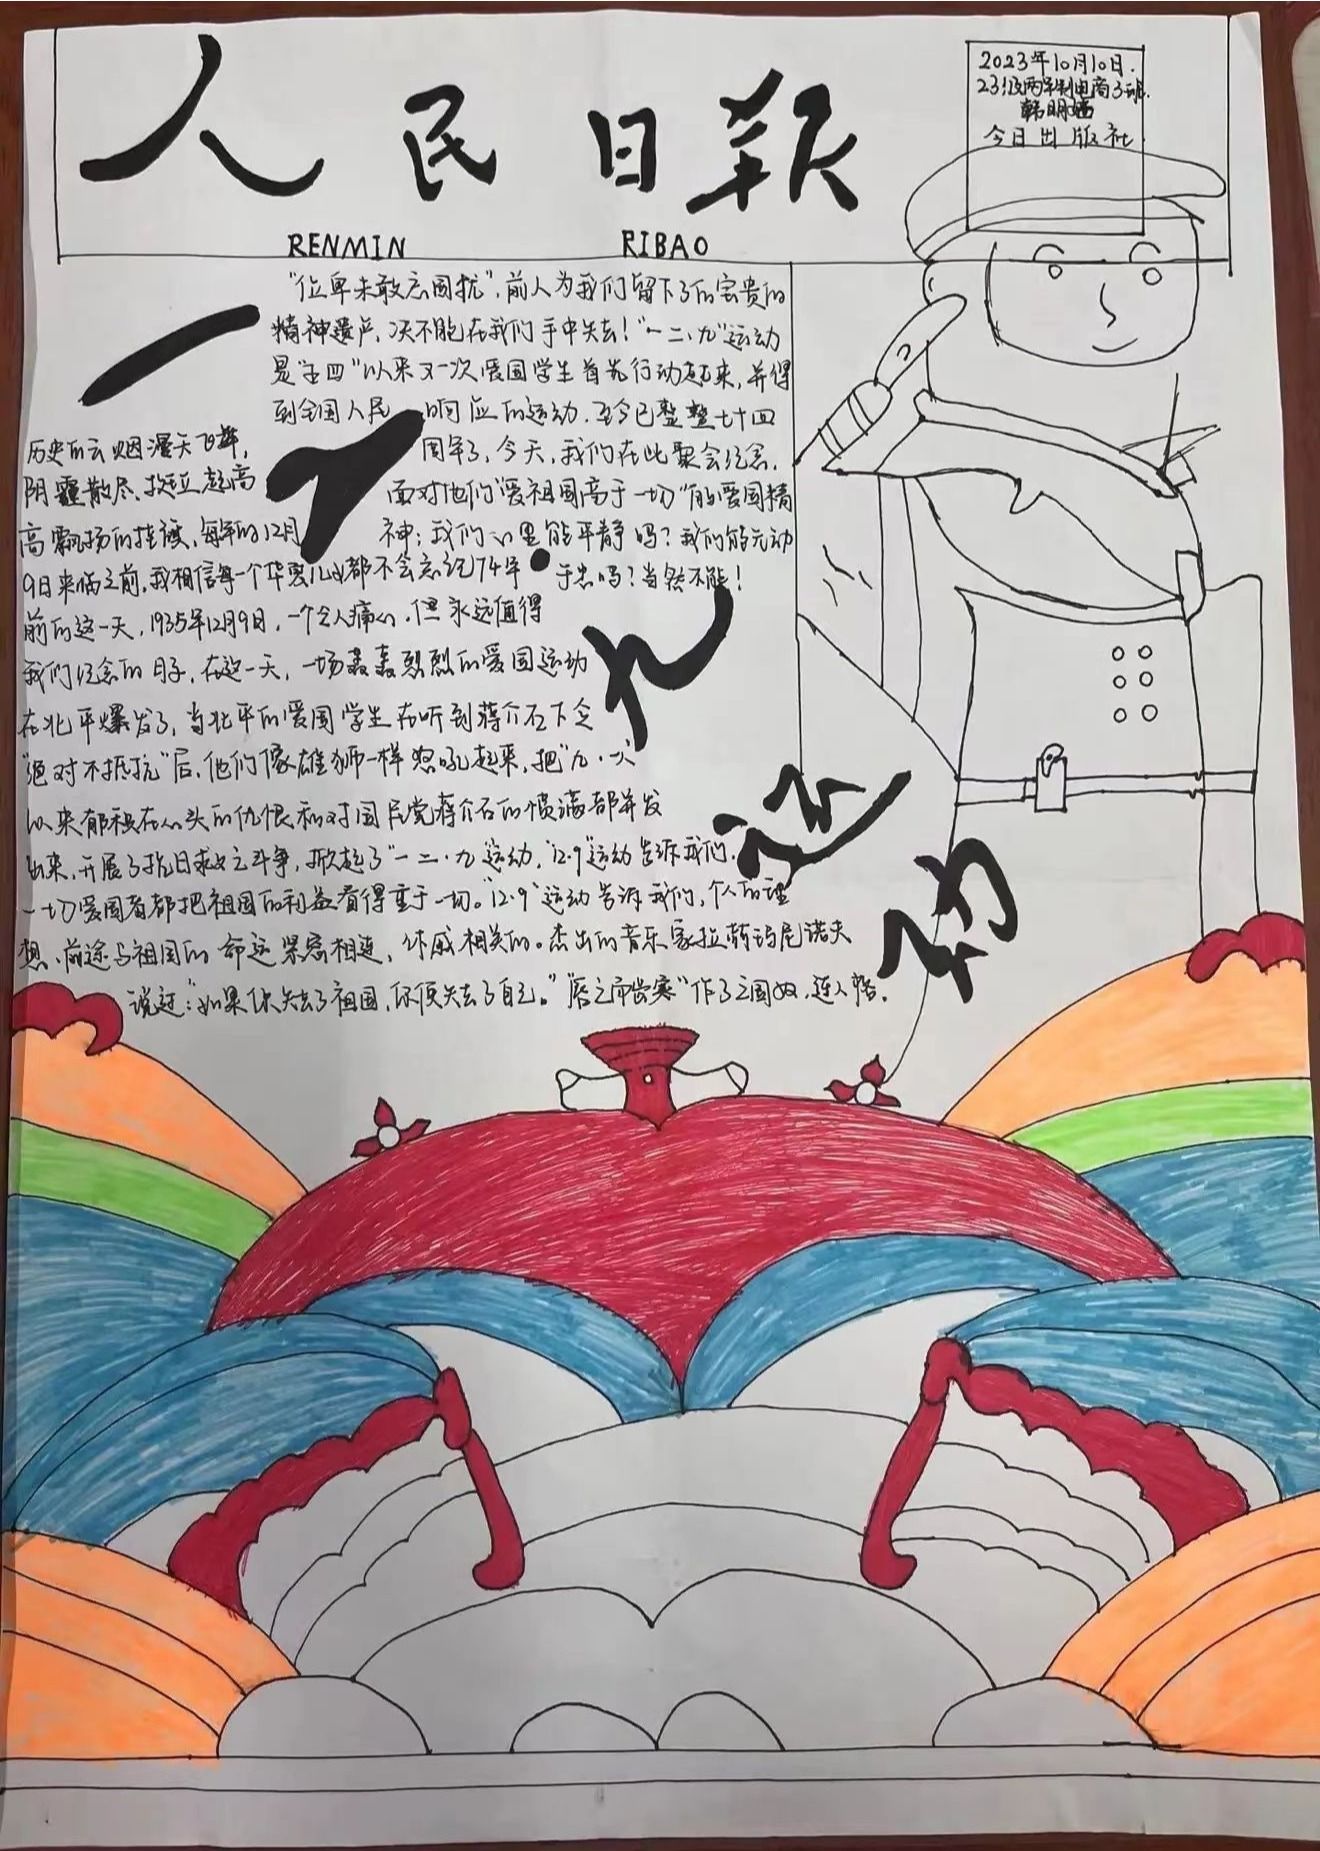 人民日報
RENMIN RIBAO
2023年10月10日.
23级两年制电商3班.
韩明
今日出版社
一二·九运动
"位卑未敢忘国抗",前人为我们留下了的宝贵的
精神遗产,决不能在我们手中失去!"一二·九"运动
是"五四"以来又一次爱国学生首先行动起来,并得
到全国人民响应的运动.至今已整整七十四
周年了,今天,我们在此聚会纪念,
面对他们"爱祖国高于一切"的爱国精
神;我们心里能平静吗?我们能无动
于忠吗?当然不能!
历史的云烟漫天飞舞,
阴霾散尽,挺立起高
高飘扬的旗,每年的12月
9日来临之前,我相信每一个华夏儿女都不会忘记74年
前的这一天,1935年12月9日,一个令人痛心,但永远值得
我们纪念的日子,在这一天,一场轰轰烈烈的爱国运动
在北平爆发了,当北平的爱国学生在听到蒋介石下令
"绝对不抵抗"后,他们像雄狮一样怒吼起来,把"九·一八"
以来郁积在心头的仇恨和对国民党蒋介石的愤满都并发
出来,开展了抗日救亡之斗争,掀起了"一二·九运动,"12·9"运动告诉我们,
一切爱国者都把祖国的利益看得重于一切。"12·9"运动告诉我们,个人的理
想、前途与祖国的命运紧密相连,休戚相关的。杰出的音乐家拉赫玛尼诺夫
说过:"如果你失去了祖国,你便失去了自己。""唇亡齿寒"作了亡国奴,连人格.